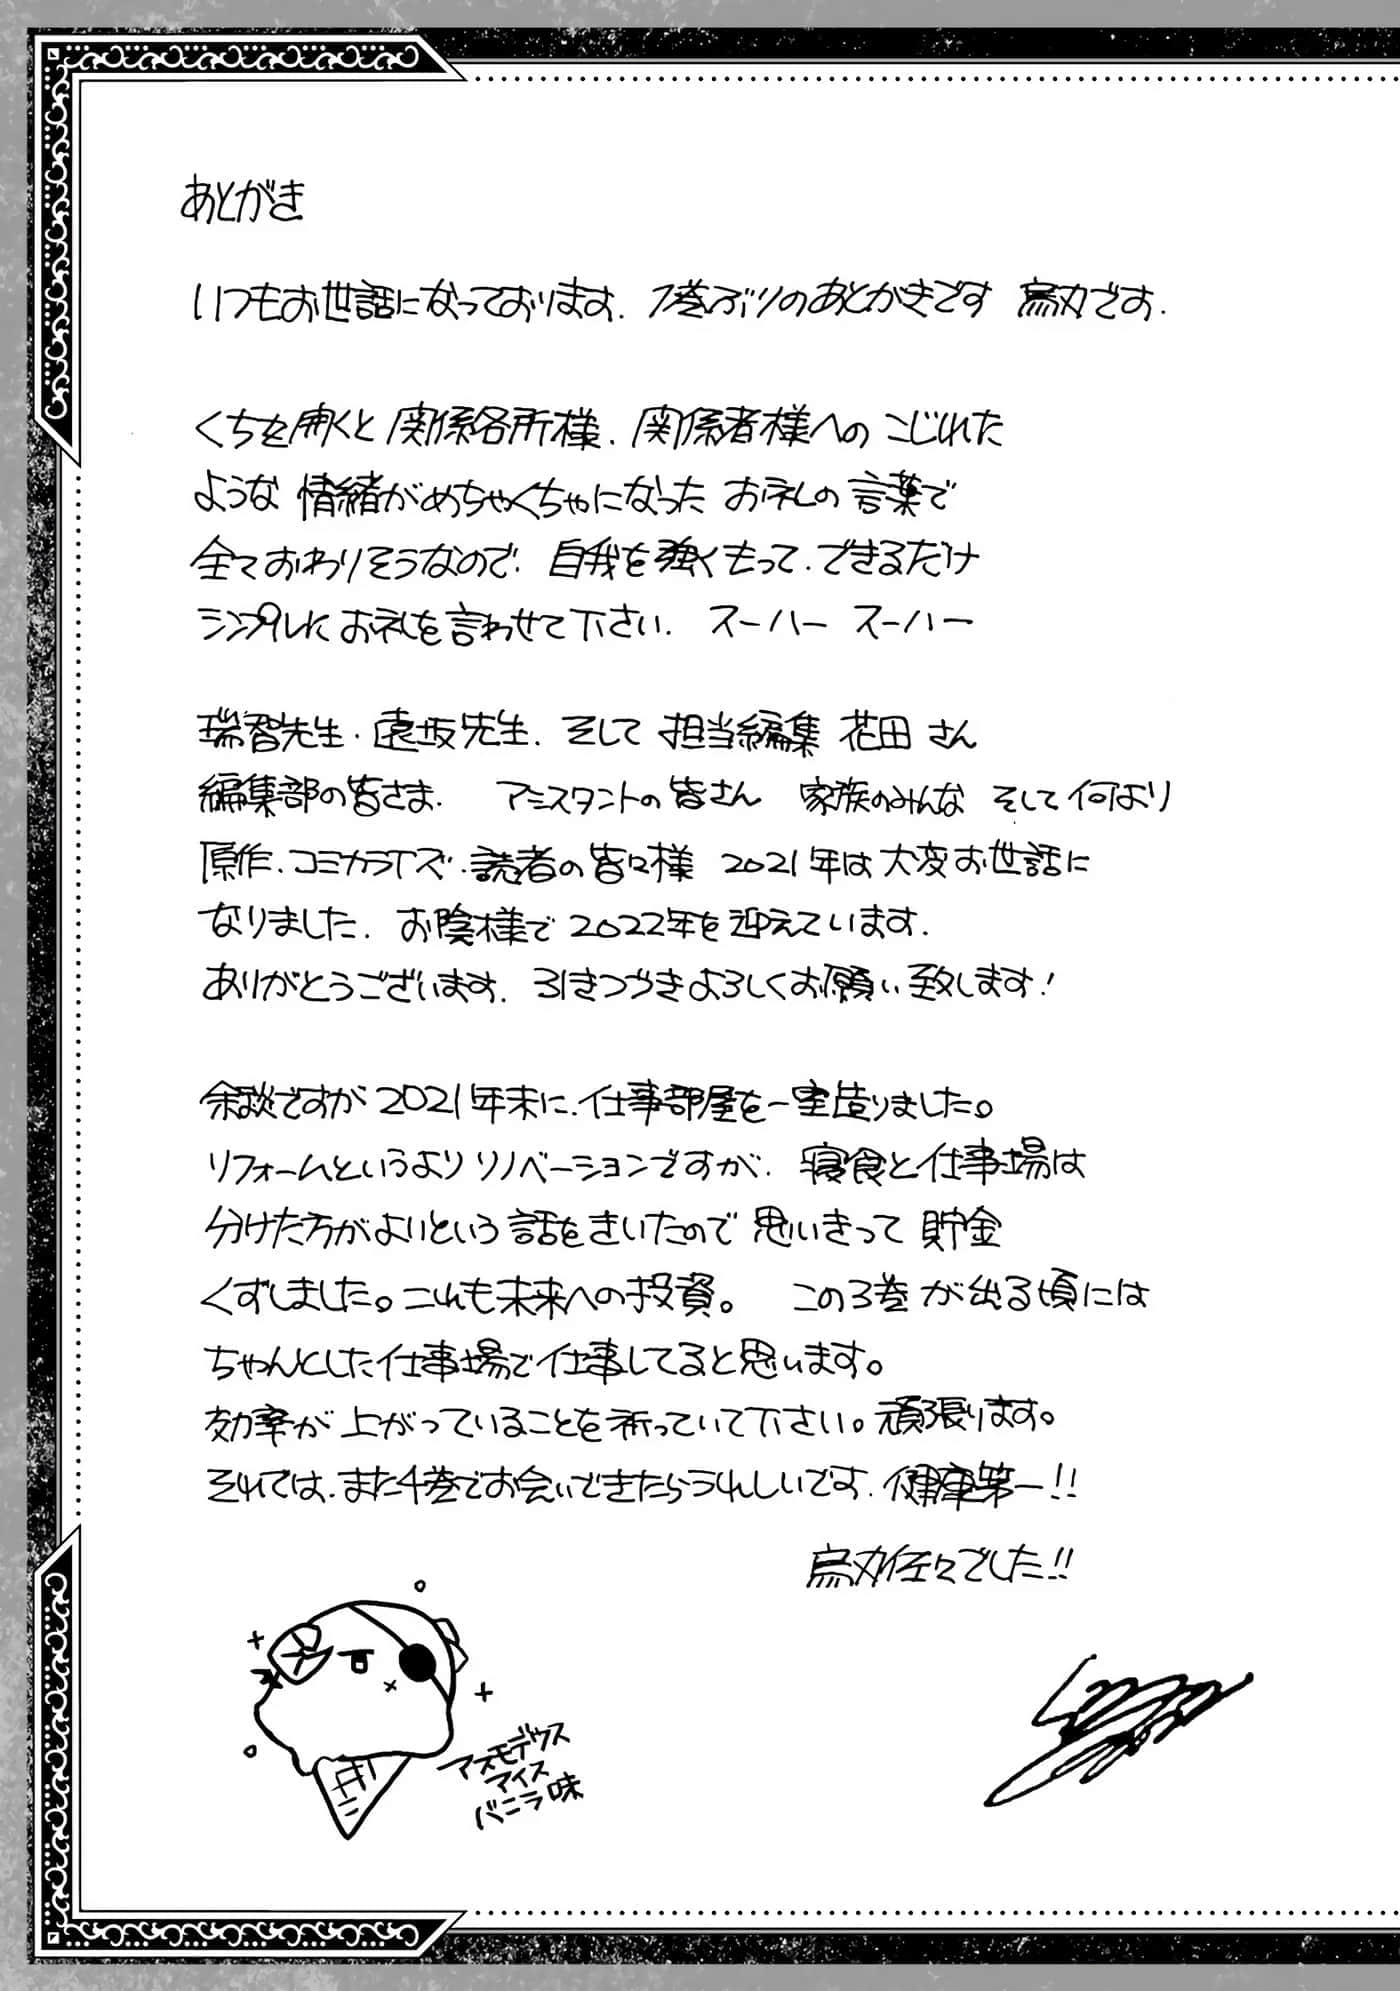 あとがき
いつもお世話になっております. 1巻ぶりのあとがきです 烏丸です.
くちを開くと 関係各所様. 関係者様への こじれた
ような 情緒がめちゃくちゃになった お礼の 言葉で
全ておわりそうなので. 自我を強くもって. できるだけ
シンプルに お礼を言わせて下さい. スーハー スーハー
瑞智先生. 遠坂先生. そして 担当編集 花田 さん
編集部の皆さま. アシスタントの皆さん 家族のみんな そして何より
原作. コミカライズ. 読者の皆々様 2021年は大変お世話に
なりました. お陰様で2022年を迎えています.
ありがとうございます. 引きつづきよろしくお願い致します!
余談ですが2021年末に. 仕事部屋を一室造りました。
リフォームというよりリノベーションですが. 寝食と仕事場は
分けた方がよいという話をきいたので 思いきって 貯金
くずしました。これも未来への投資。 この3巻が出る頃には
ちゃんとした仕事場で仕事してると思います。
効率が上がっていることを祈っていて下さい。頑張ります。
それでは. また4巻でお会いできたらうれしいです. 健康第一!!
烏丸佐々でした!!
アスモデウス
アイス
バニラ味